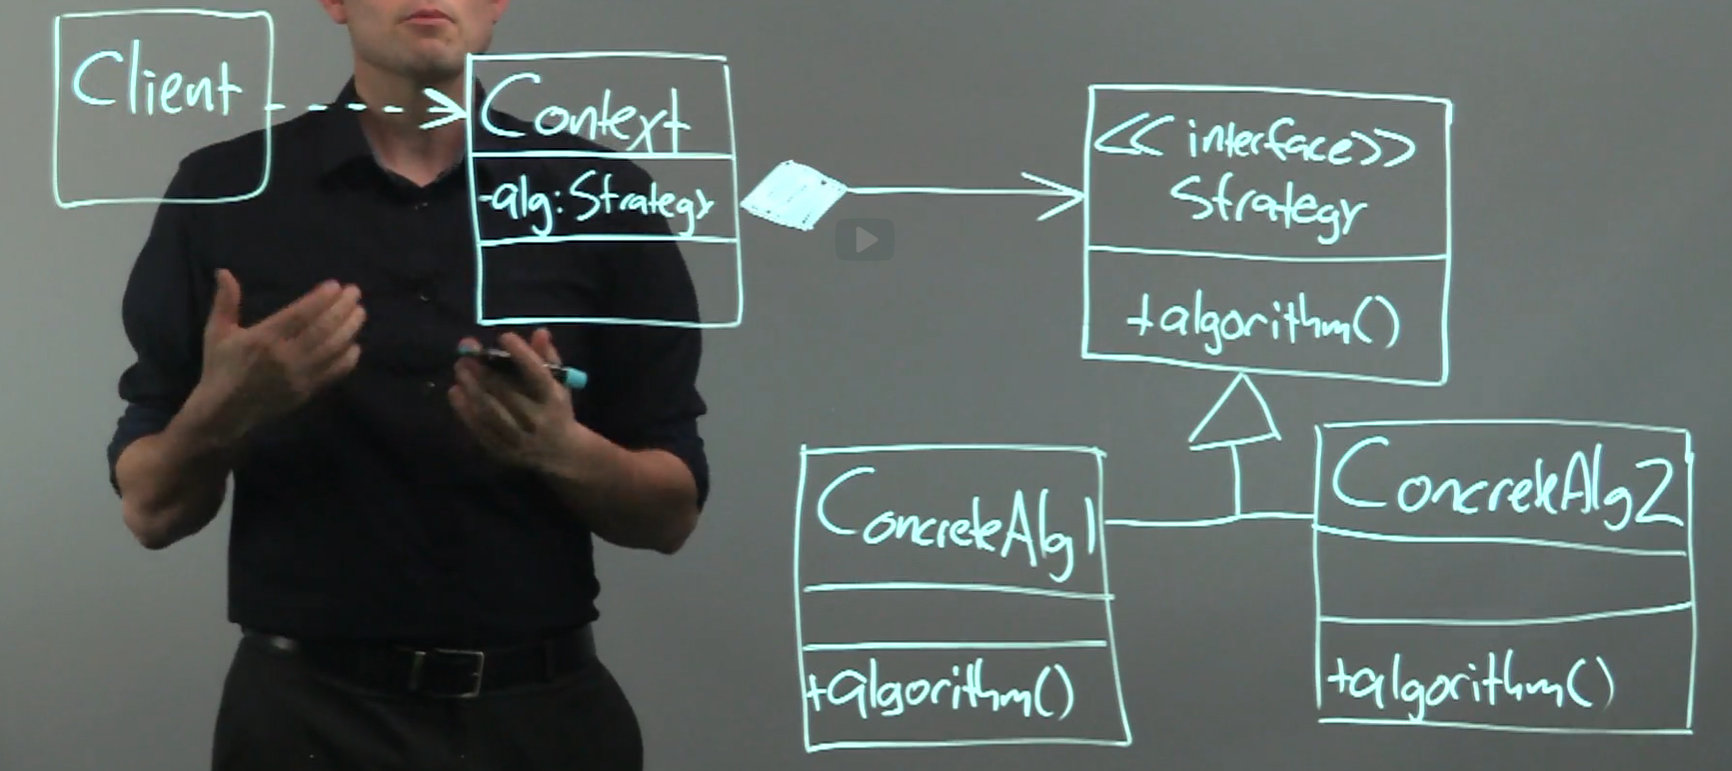 Client
Context
-alg:Strategy
<<interface>>
Strategy
+algorithm()
ConcreteAlg1
+algorithm()
ConcreteAlg2
+algorithm()